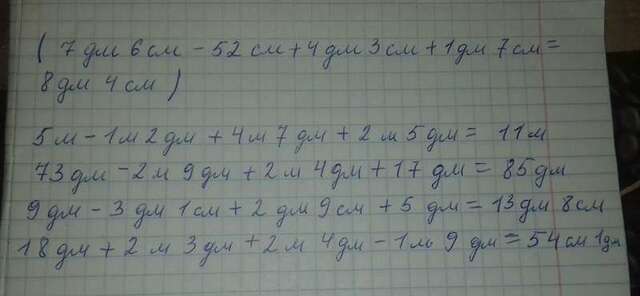 ( 7 дм 6 см - 52 см + 4 дм 3 см + 1 дм 7 см =
8 дм 4 см )
5 м - 1 м 2 дм + 4 м 7 дм + 2 м 5 дм = 11 м
73 дм - 2 м 9 дм + 2 м 4 дм + 17 дм = 85 дм
9 дм - 3 дм 1 см + 2 дм 9 см + 5 дм = 13 дм 8 см
18 дм + 2 м 3 дм + 2 м 4 дм - 1 м 9 дм = 54 см 1 дм